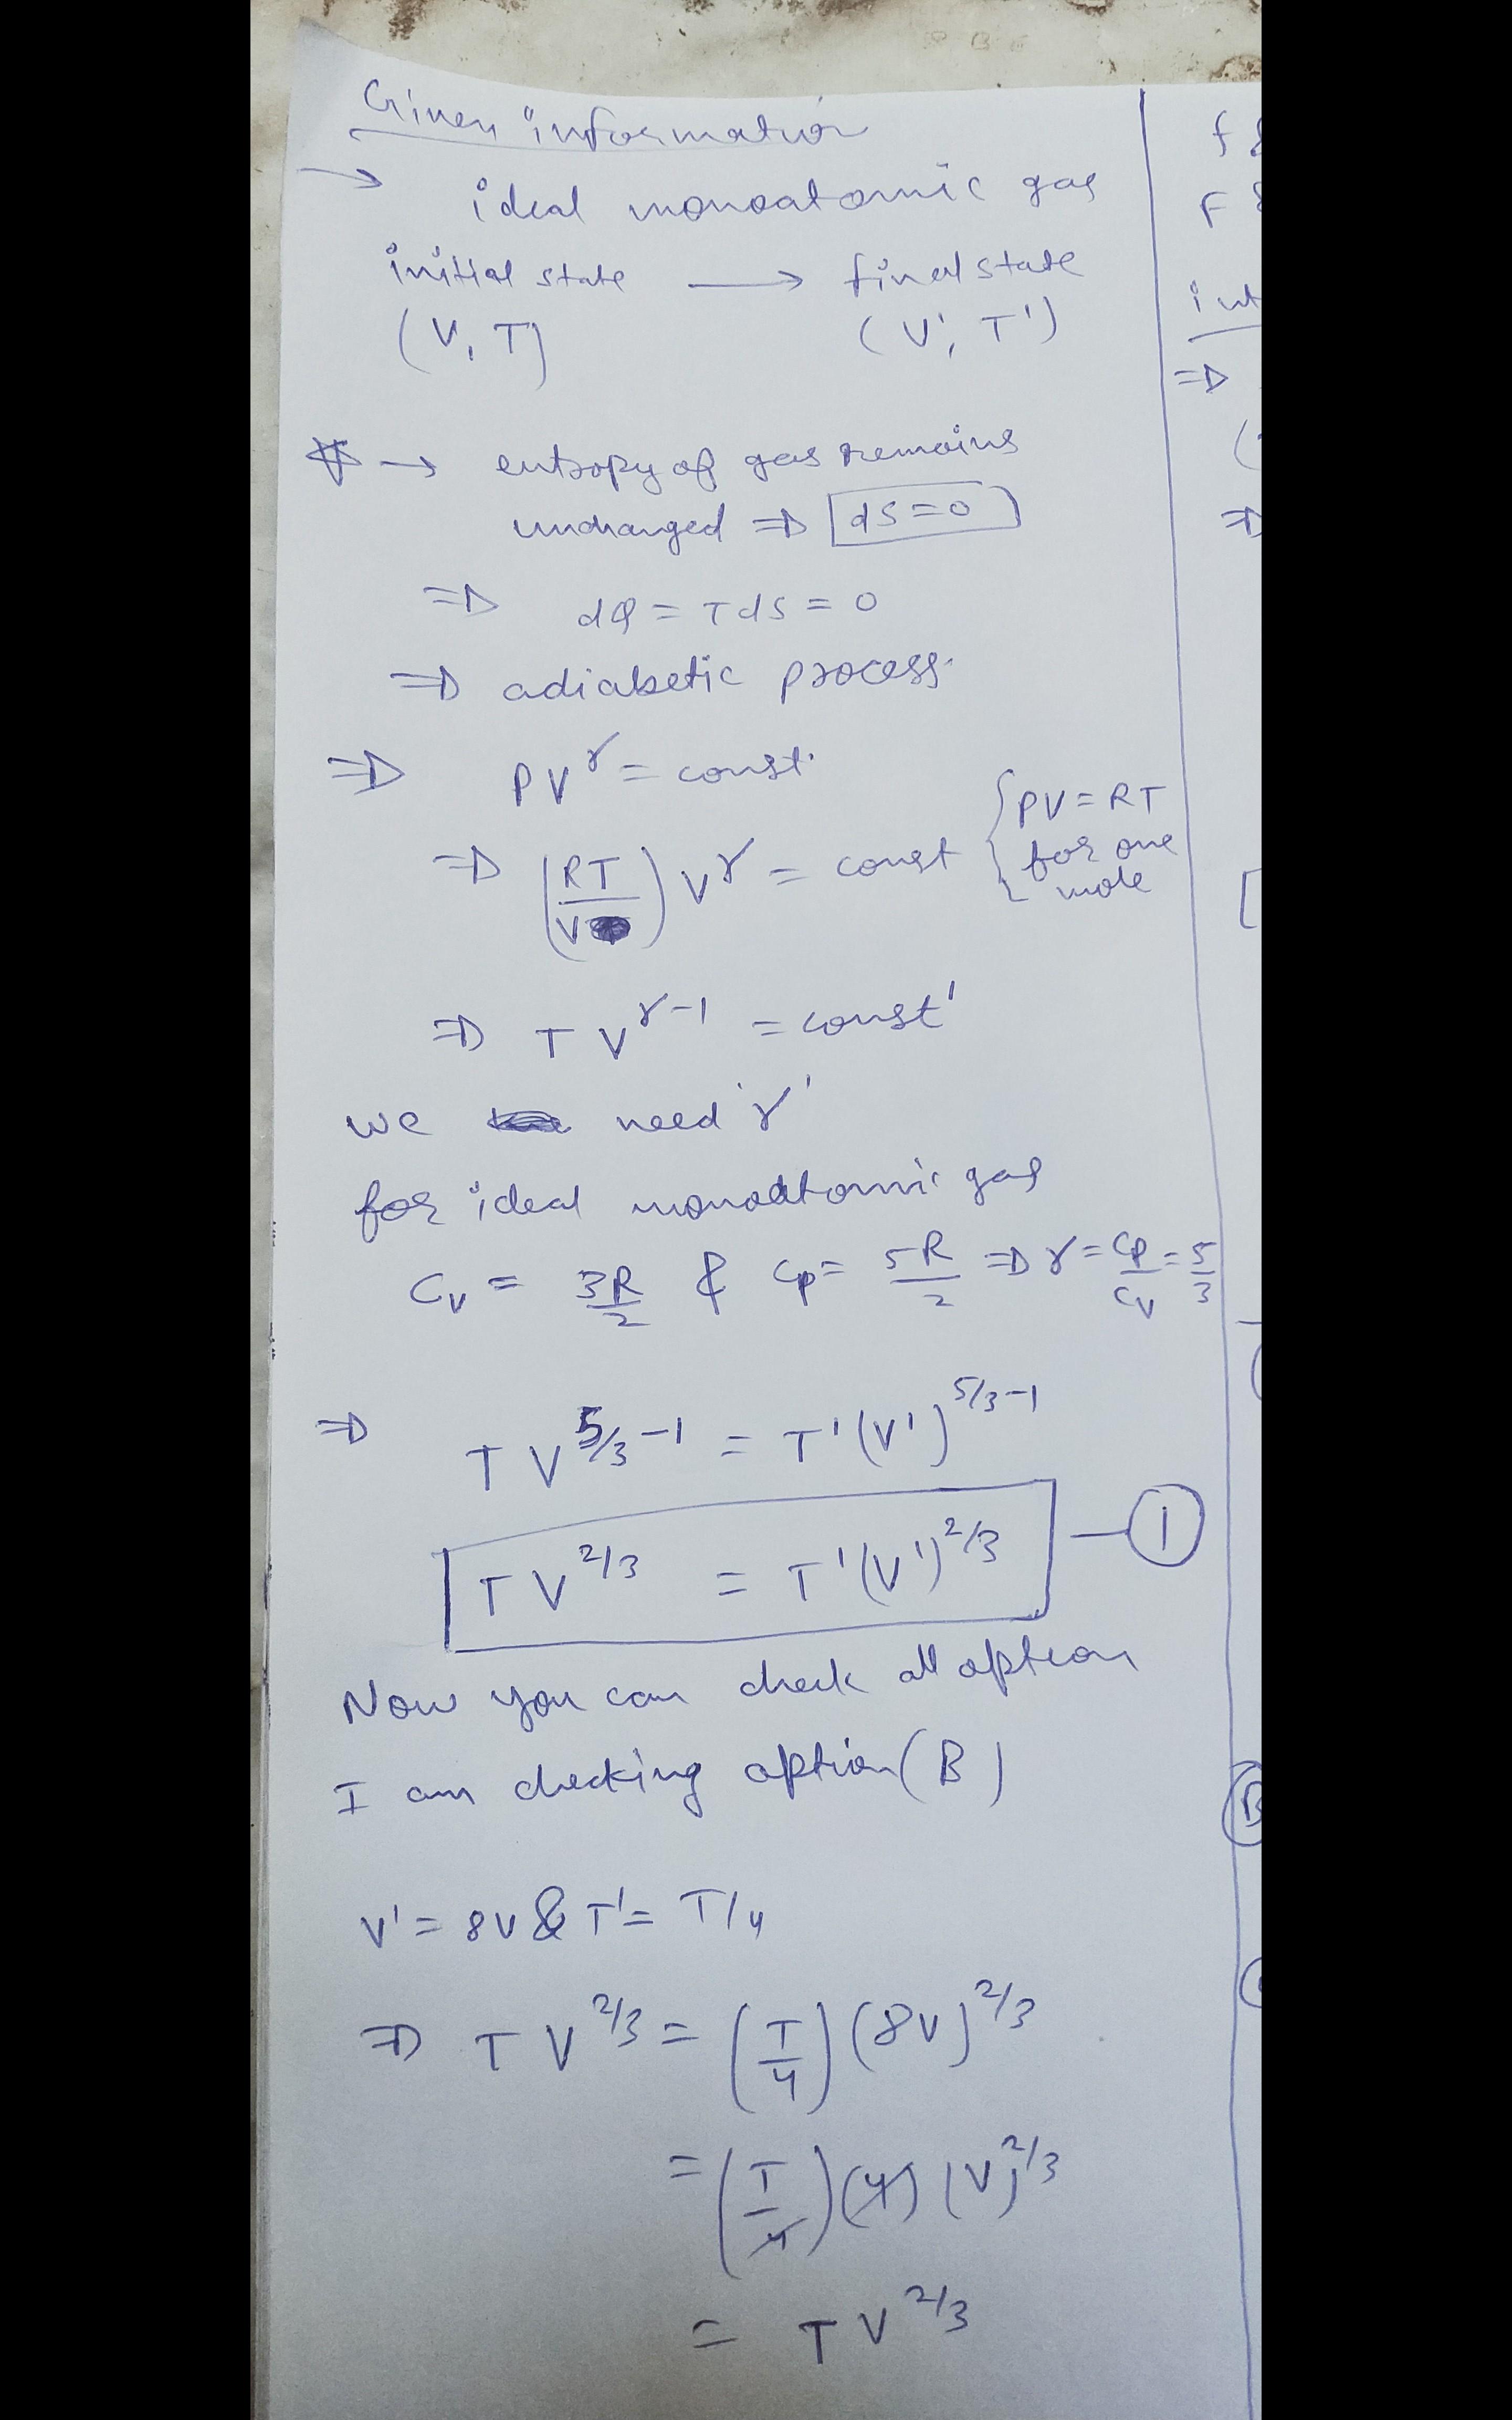 Given information
→ ideal monoatomic gas
initial state → final state
(V, T) (V', T')
→ entropy of gas remains
unchanged ⇒ dS=0
⇒ dQ = TdS = 0
⇒ adiabetic process.
⇒ PV^γ = const.
⇒ (RT/V) V^γ = const { PV = RT
for one
mole
⇒ T V^(γ-1) = const'
we need 'γ'
for ideal monoatomic gas
Cv = 3R/2 & Cp = 5R/2 ⇒ γ = Cp/Cv = 5/3
⇒ T V^(5/3-1) = T'(V')^(5/3-1)
T V^(2/3) = T'(V')^(2/3) — 1
Now you can check all option
I am checking option (B)
V' = 8V & T' = T/4
⇒ T V^(2/3) = (T/4) (8V)^(2/3)
= (T/4) (4) (V)^(2/3)
= T V^(2/3)
f
F
int
⇒
(
⇒
[